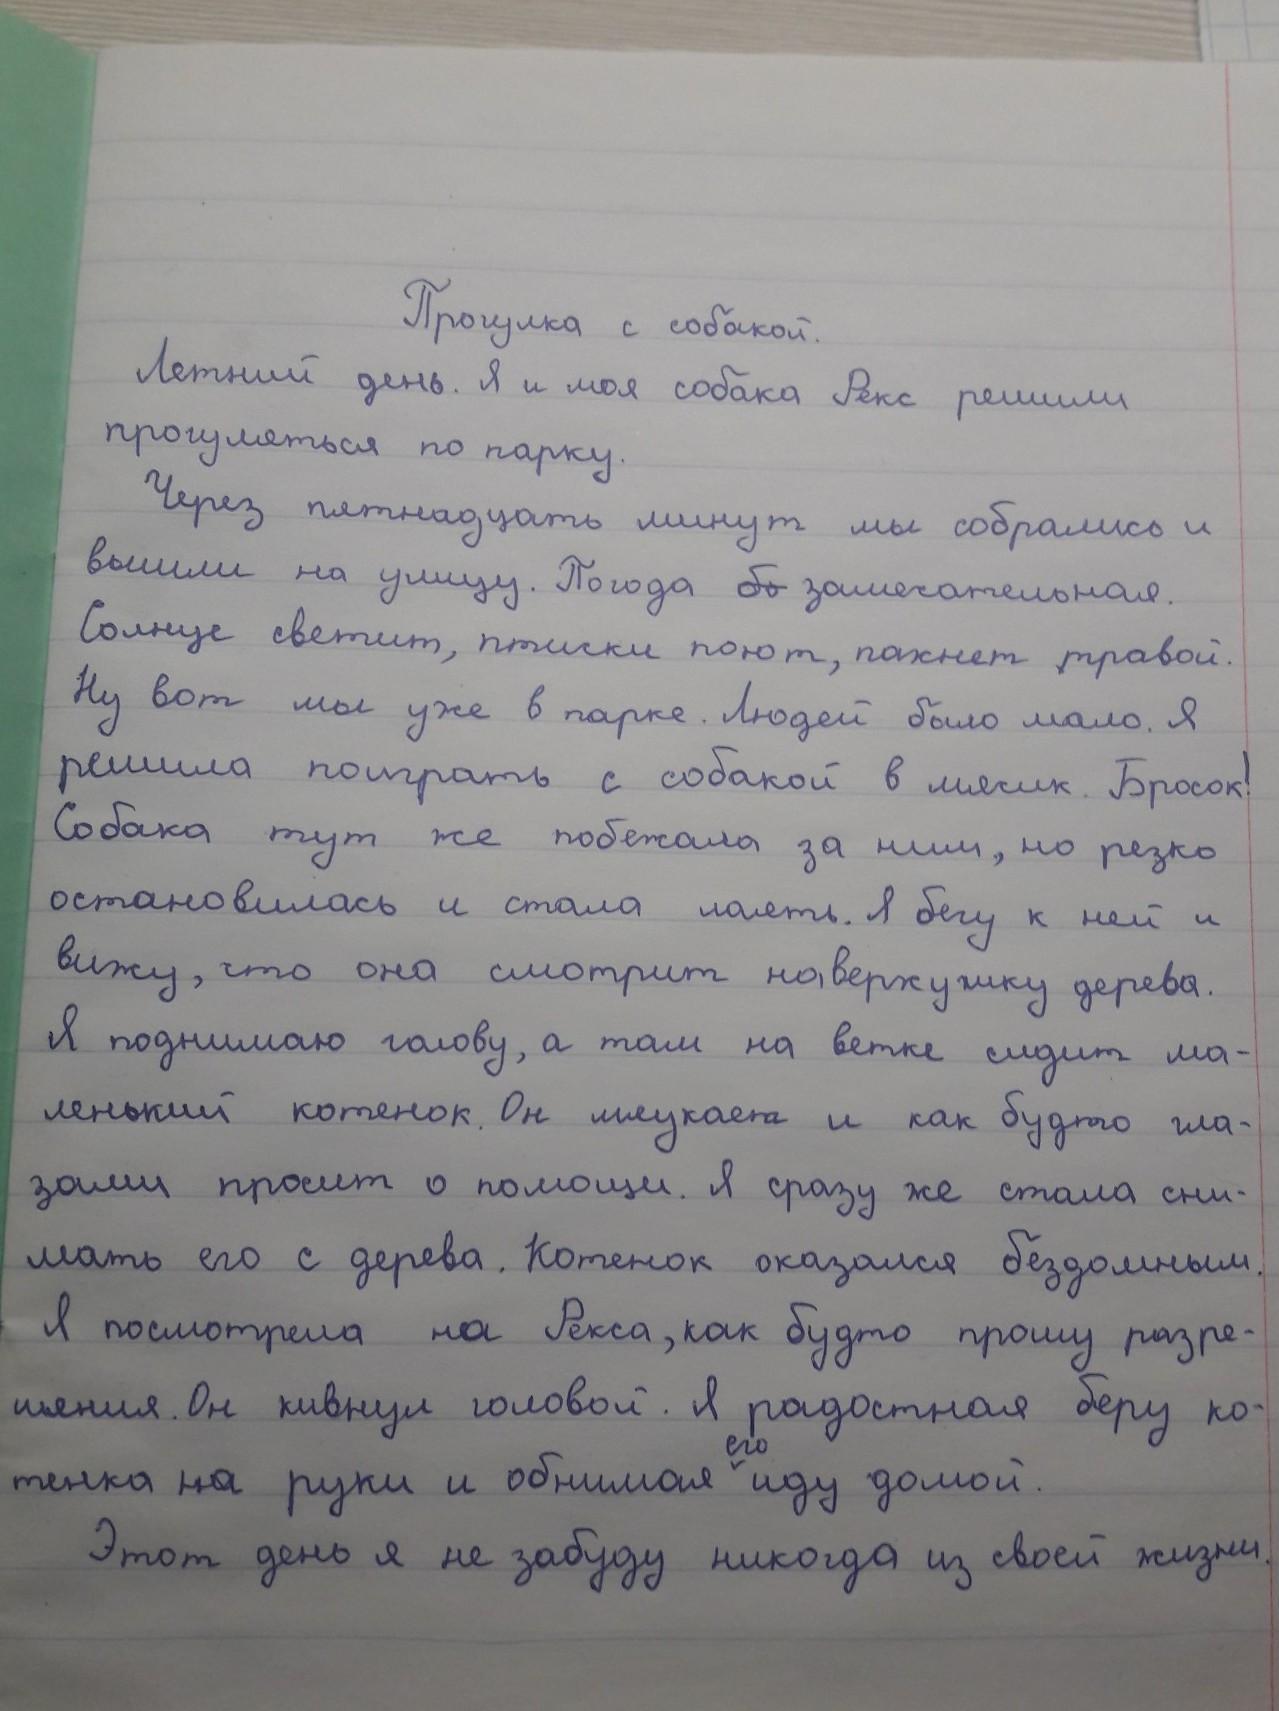 Прогулка с собакой.
Летний день. Я и моя собака Рекс решили
прогуляться по парку.
Через пятнадцать минут мы собрались и
вышли на улицу. Погода замечательная.
Солнце светит, птички поют, пахнет травой.
Ну вот мы уже в парке. Людей было мало. Я
решила поиграть с собакой в мячик. Бросок!
Собака тут же побежала за ним, но резко
остановилась и стала лаять. Я бегу к ней и
вижу, что она смотрит наверхушку дерева.
Я поднимаю голову, а там на ветке сидит ма-
ленький котенок. Он мяукает и как будто гла-
зами просит о помощи. Я сразу же стала сни-
мать его с дерева. Котенок оказался бездомным.
Я посмотрела на Рекса, как будто прошу разре-
шения. Он кивнул головой. Я радостная беру ко-
тенка на руки и обнимая его иду домой.
Этот день я не забуду никогда из своей жизни.